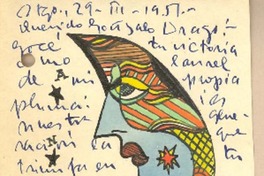 Stgo., 29-III-1951.-
Querido Gonzalo Drago:-
gocé tu victoria
como laurel
de mi propia
pluma: es
nuestra gene-
ración la que
triunfa en tu